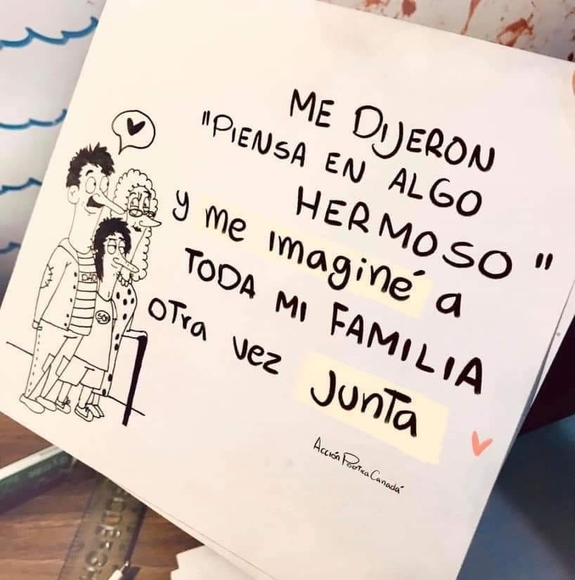 ME DIJERON
"PIENSA EN ALGO
HERMOSO"
y me imaginé a
TODA MI FAMILIA
OTRA VEZ JUNTA
Acción Poética Canadá
DAD
SON